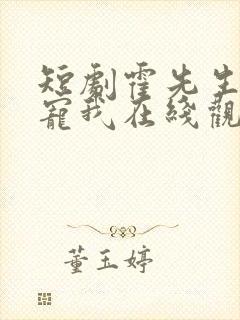 短劇霍先生
寵我在綫觀
董玉婷